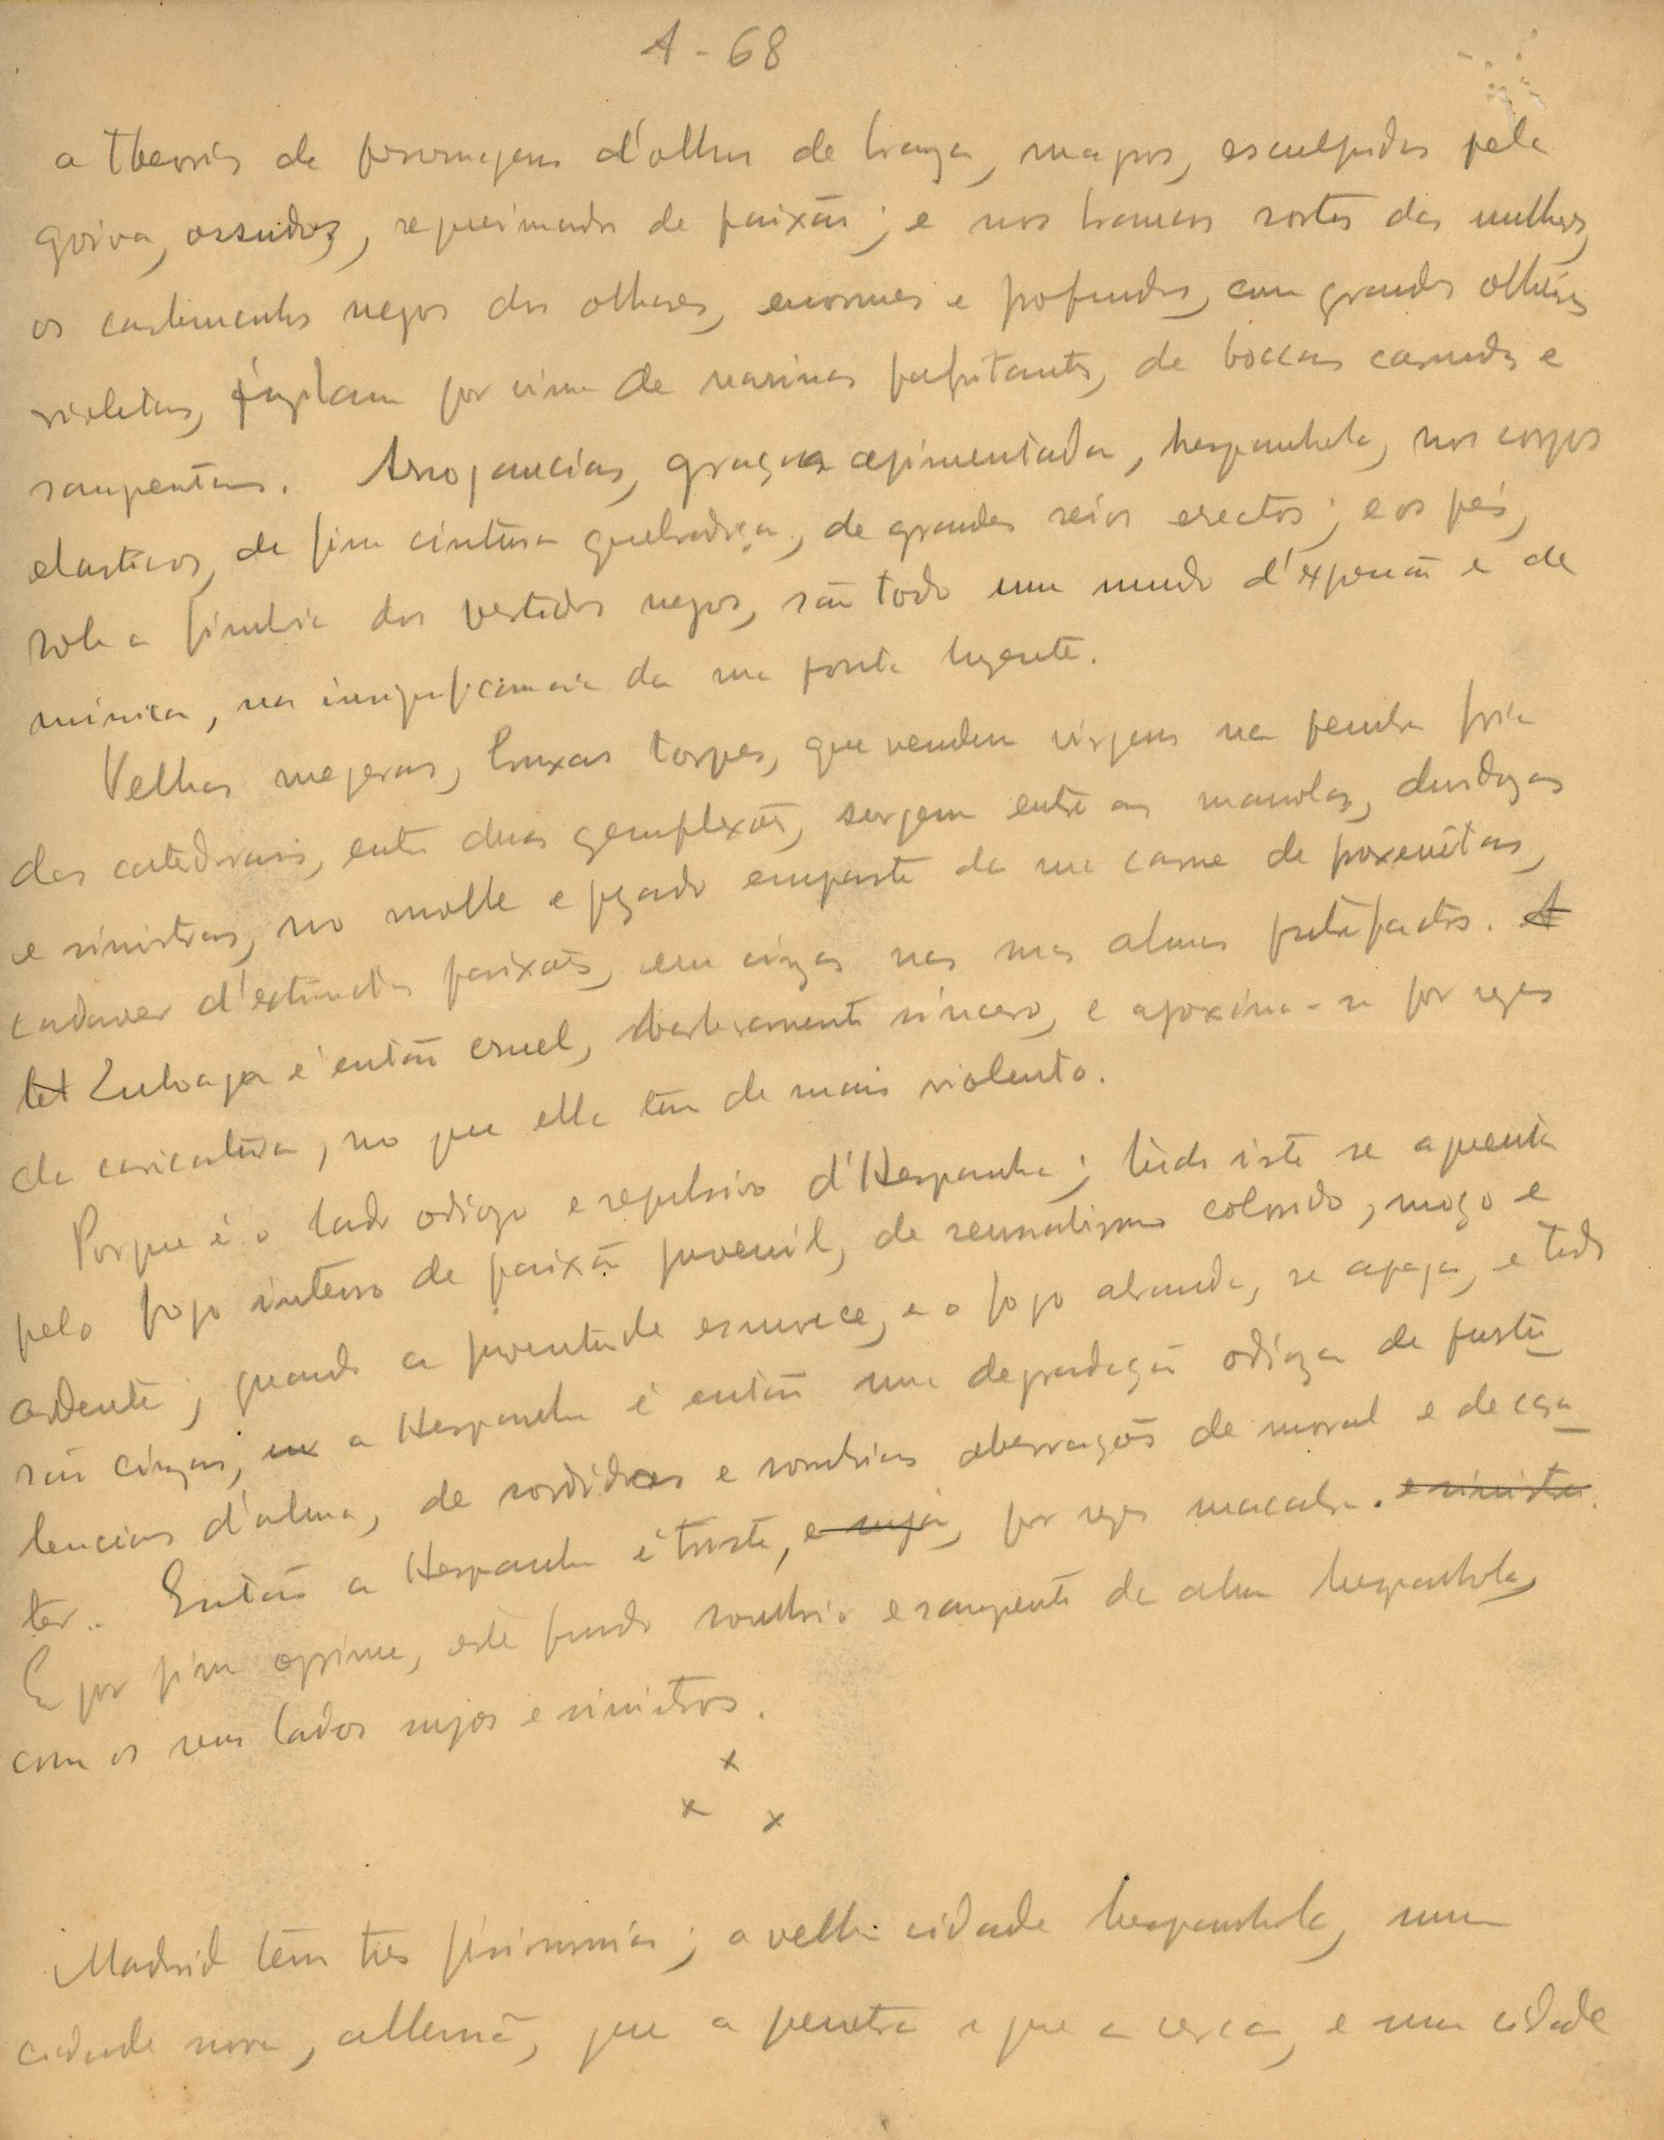 A - 68
a theoria de personagens d'olhos de braza, magros, esculpidos pela
goiva, ossudos, requeimados de paixão; e nos brancos rostos das mulheres,
os negros dos olhares, enormes e profundos, com grandes olheiras
violetas, por cima de narinas palpitantes, de boccas carnudas e
sangrentas. Arrogancias, graças apimentada, hespanhola, nos corpos
elasticos, de fina cintura quebradiça, de grandes seios erectos; e os pés,
sob a fimbria dos vestidos negros, são todo um mundo d'expressão e de
mimica, na insignificancia da sua ponta luzente.
Velhas megeras, bruxas torpes, que vendem virgens na penumbra fria
das cathedraes, entre duas genuflexões, surgem entre as manolas,
e sinistras, no molle e pezado empaste da sua carne de proxenetas,
cadaver d'extinctas paixões, em cinzas nas suas almas putrefactas. A
Zuloaga é então cruel, barbaramente sincero, e aproxima-se por vezes
da caricatura, no que ella tem de mais violento.
Porque é o lado odiozo e repulsivo d'Hespanha; tudo isto se aquenta
pelo fogo intenso de paixão juvenil, de sensualismo colorido, moço e
ardente; quando a juventude esmorece, e o fogo abranda, se apaga, e tudo
são cinzas, a Hespanha é então uma degradação odioza de pusti_
lencias d'alma, de sordidas e sombrias aberrações de moral e de cara_
ter.. Então a Hespanha é triste, e suja, por vezes macabra. e sinistra.
E por fim opprime, este fundo sombrio e sangrento da alma hespanhola,
com os seus lados sujos e sinistros.
x
x x
Madrid tem tres fisionomias; a velha cidade hespanhola, uma
cidade nova, allemã, que a penetra e que a cerca, e uma cidade